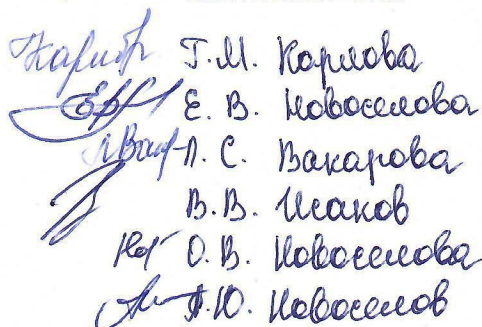 Г.М. Карлова
Е. В. Новоселова
Л. С. Вакарова
В. В. Исаков
О. В. Новоселова
Ю. Новоселов